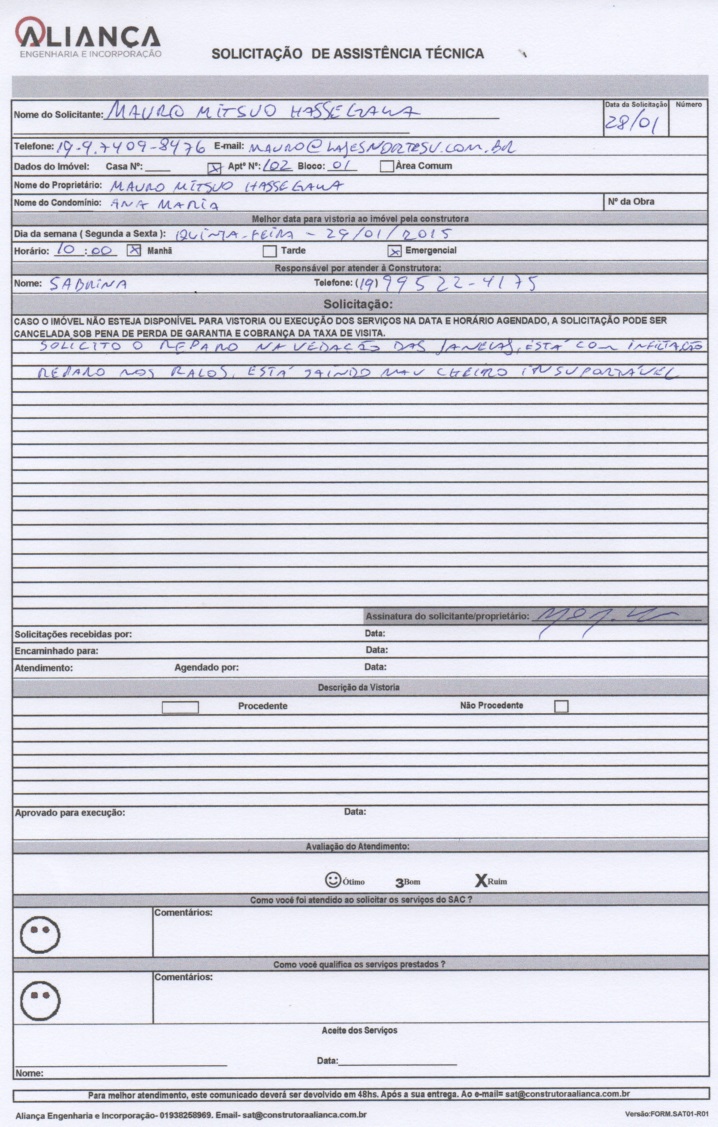 ALIANÇA
ENGENHARIA E INCORPORAÇÃO
SOLICITAÇÃO DE ASSISTÊNCIA TÉCNICA
Nome do Solicitante: MAURO MITSUO HASSEGAWA
Data da Solicitação Número
28/01
Telefone: 19-9.7409-8476 E-mail: MAURO@LAJESNORTESU.COM.BR
Dados do Imóvel: Casa Nº: ____ X Aptº Nº: 102 Bloco: 01 Área Comum
Nome do Proprietário: MAURO MITSUO HASSEGAWA
Nome do Condomínio: ANA MARIA Nº da Obra
Melhor data para vistoria ao imóvel pela construtora
Dia da semana ( Segunda a Sexta ): QUINTA-FEIRA - 29/01/2015
Horário: 10:00 X Manhã Tarde X Emergencial
Responsável por atender à Construtora:
Nome: SABRINA Telefone: (19) 99522-4175
Solicitação:
CASO O IMÓVEL NÃO ESTEJA DISPONÍVEL PARA VISTORIA OU EXECUÇÃO DOS SERVIÇOS NA DATA E HORÁRIO AGENDADO, A SOLICITAÇÃO PODE SER
CANCELADA SOB PENA DE PERDA DE GARANTIA E COBRANÇA DA TAXA DE VISITA.
SOLICITO O REPARO NA VEDACÃO DAS JANELAS, ESTÁ COM INFILTAÇÃO
REPARO NOS RALOS, ESTÁ SAINDO MAU CHEIRO INSUPORTÁVEL
Assinatura do solicitante/proprietário:
Solicitações recebidas por: Data:
Encaminhado para: Data:
Atendimento: Agendado por: Data:
Descrição da Vistoria
Procedente Não Procedente
Aprovado para execução: Data:
Avaliação do Atendimento:
Ótimo 3Bom XRuim
Como você foi atendido ao solicitar os serviços do SAC ?
Comentários:
Como você qualifica os serviços prestados ?
Comentários:
Aceite dos Serviços
Data:
Nome:
Para melhor atendimento, este comunicado deverá ser devolvido em 48hs. Após a sua entrega. Ao e-mail= sat@construtoraalianca.com.br
Aliança Engenharia e Incorporação- 01938258969. Email- sat@construtoraalianca.com.br
Versão:FORM.SAT01-R01